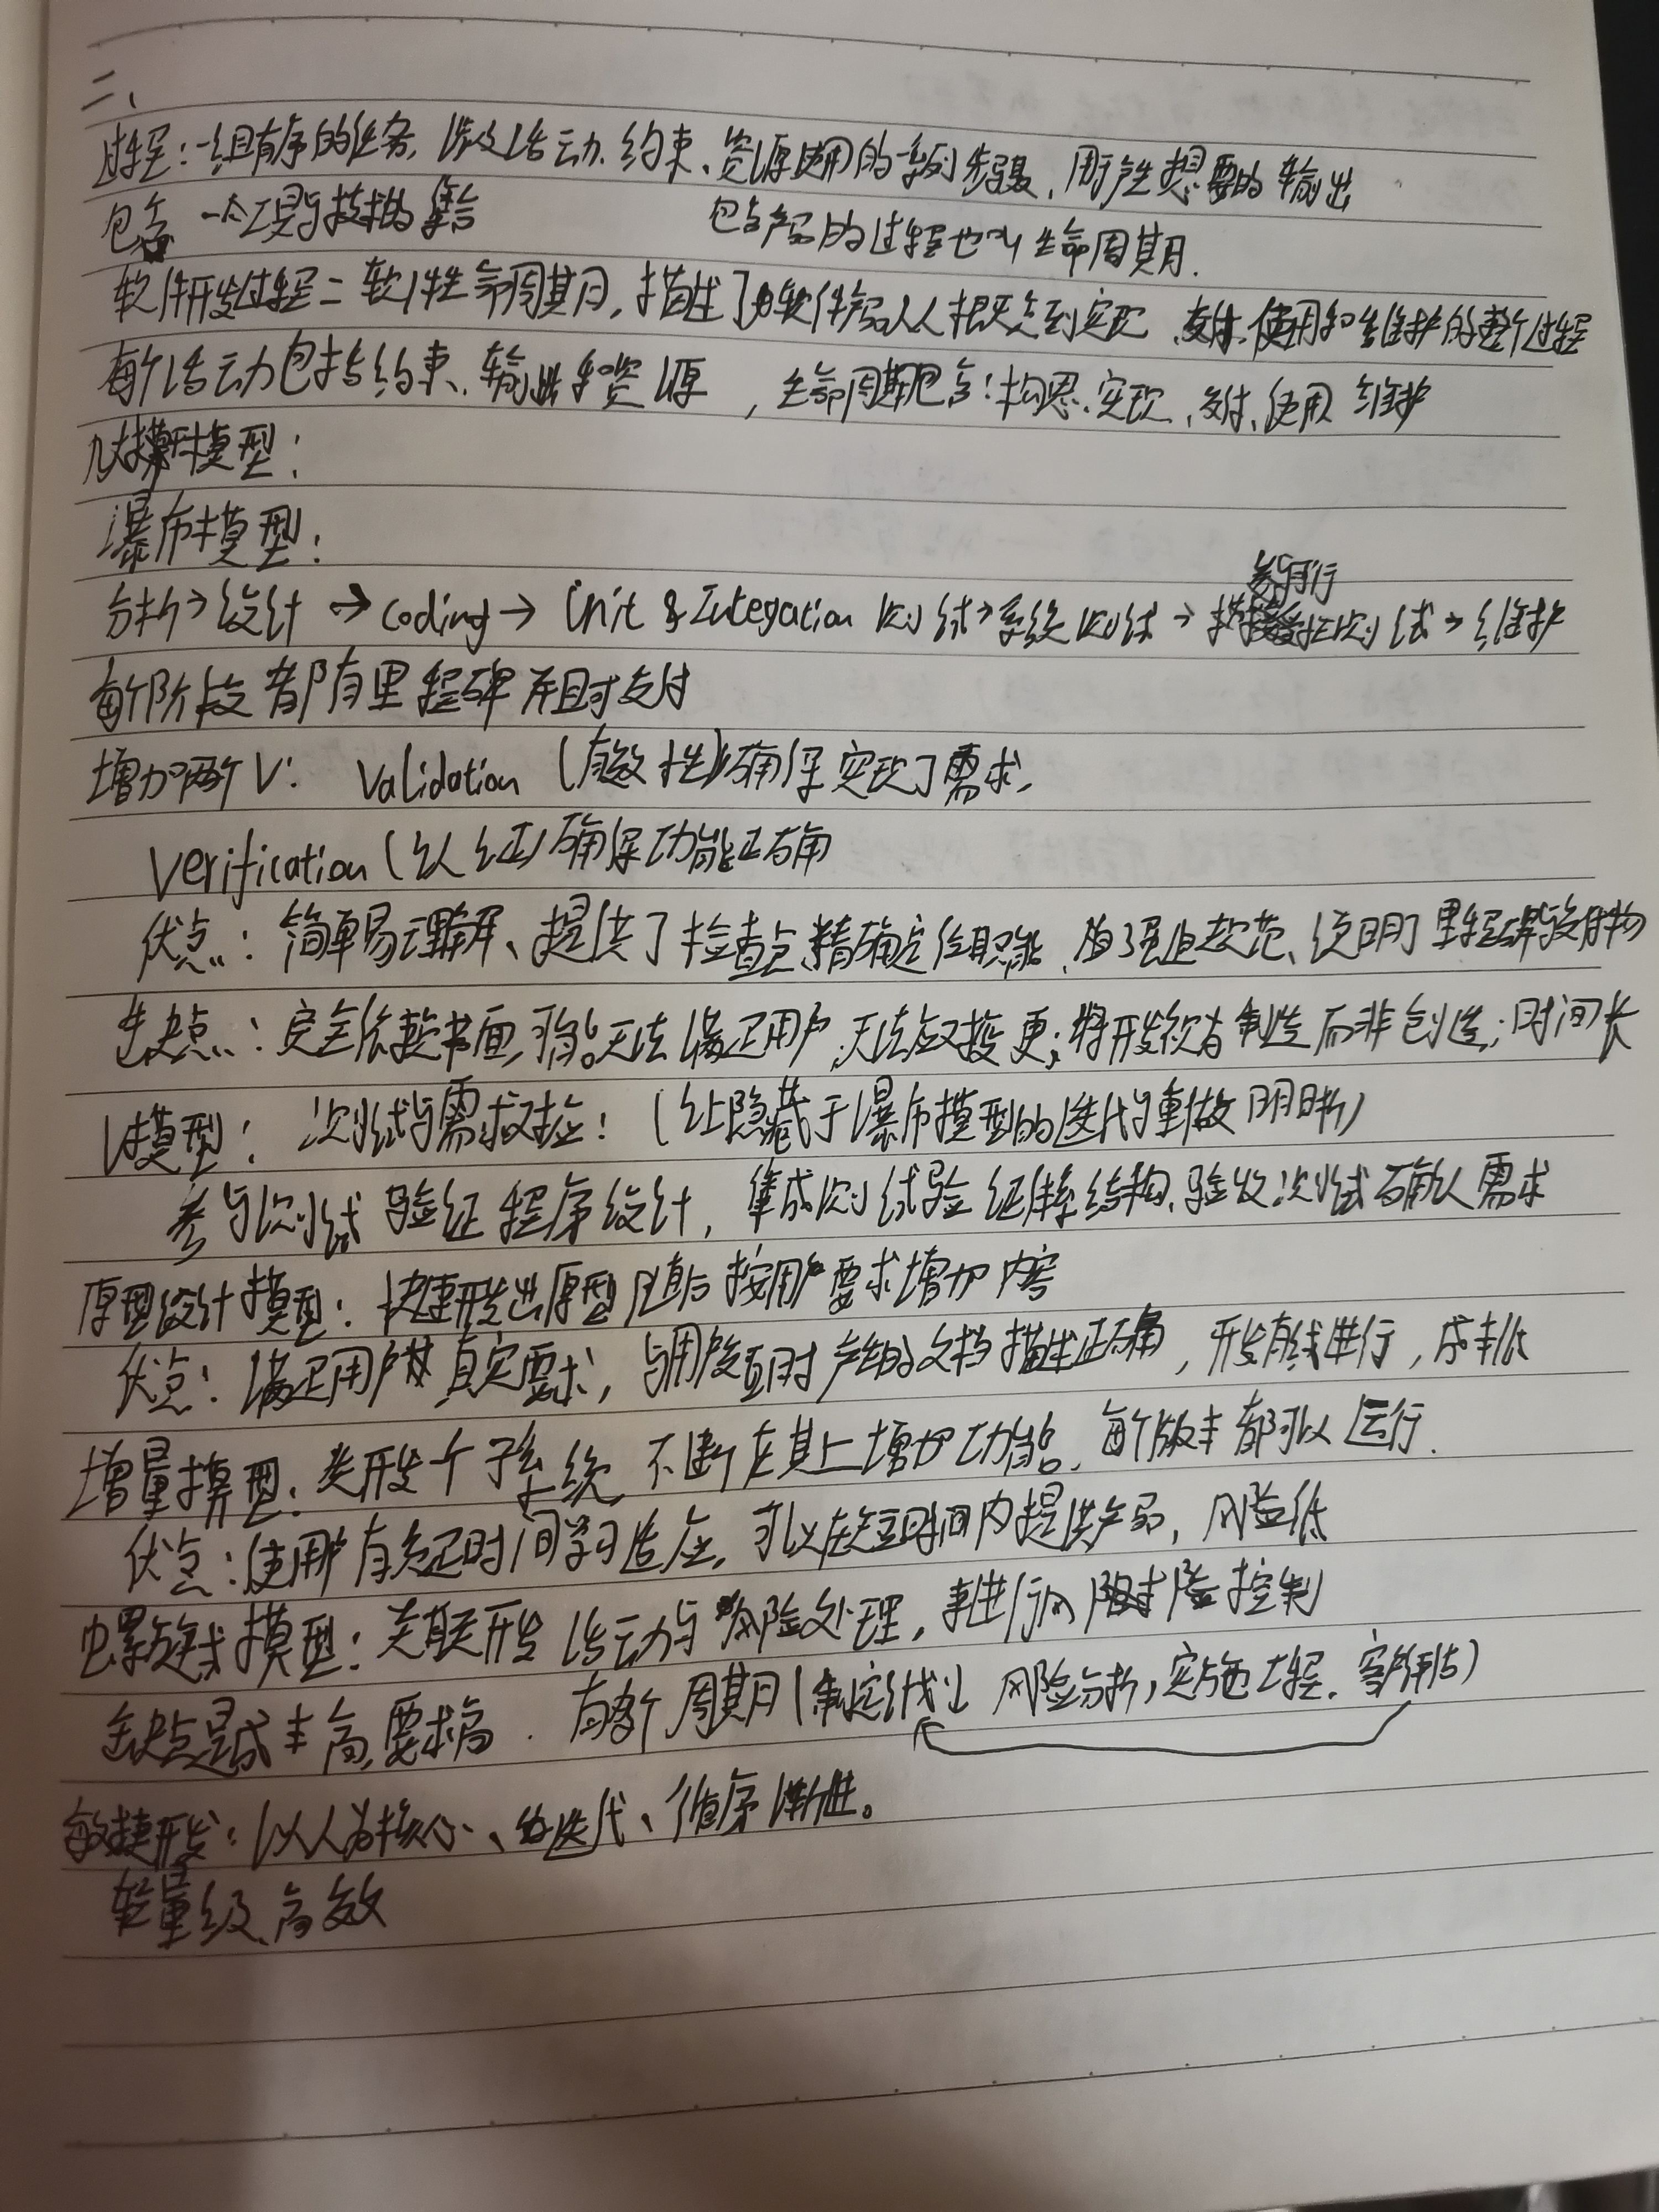 二、
过程：一组有序的任务，涉及活动、约束、资源使用的一系列步骤，用于产生想要的输出
包含 一个工具与技术的集合 包含产品的过程也叫生命周期.
软件开发过程=软件生命周期，描述了软件产品从概念到实现、交付、使用和维护的整个过程
每个活动包括约束、输出和资源，生命周期包含：构思、实现、交付、使用 维护
几大模型：
瀑布模型：
分析→设计→coding→Unit & Integation 测试→系统测试→测试→维护
每个阶段都有里程碑和交付
增加两个V： Validation（有效性）确保实现了需求,
Verification（认证）确保功能正确
优点：简单易理解、提供了检查点、精确定位职能、增强规范、说明了里程碑
缺点：完全依赖书面，无法满足用户，无法应对变更；将开发视为制造而非创造；时间长
V模型：测试与需求对应：（让隐藏于瀑布模型的迭代与重做明晰）
参与测试验证程序设计，集成测试验证体系结构、验收测试确认需求
原型设计模型：快速开发出原型随后按用户要求增加内容
优点：满足用户其真实要求，与用户交互时产生的文档描述正确，开发有线进行，成本低
增量模型：先开发一个子系统，不断在其上增加功能，每个版本都可以运行.
优点：使用户有充足时间学习适应，可以在短时间内提供产品，风险低
螺旋式模型：关联开发活动与风险处理，来进行风险控制
缺点是成本高，要求高. 有各个周期（制定计划，风险分析，实施工程，客户评估）
敏捷开发：以人为核心、迭代、循序渐进。
轻量级、高效